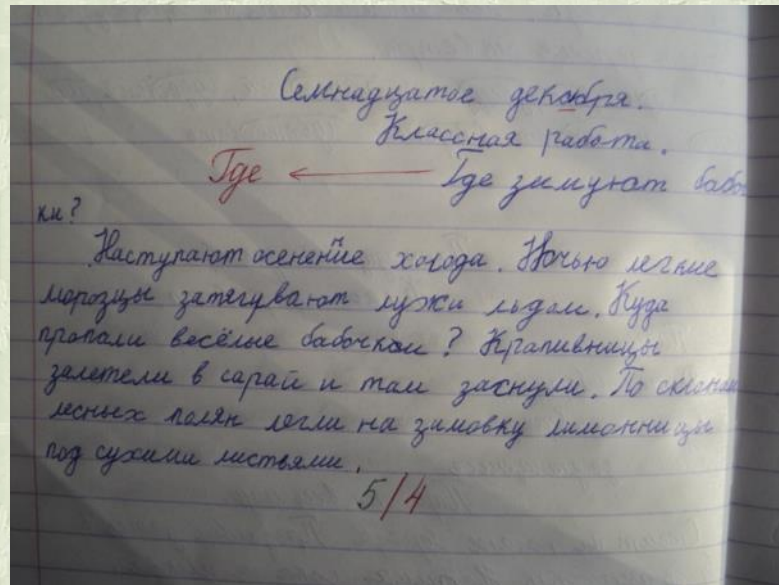 Семнадцатое декабря.
Классная работа.
Где ← Где зимуют бабоч
ки?
Наступают осенение холода. Ночью легкие
морозцы затягувают лужи льдом. Куда
пропали весёлые бабочкои? Крапивницы
залетели в сарай и там заснули. По склонам
лесных полян легли на зимовку лимонницы
под сухими листьями.
5/4